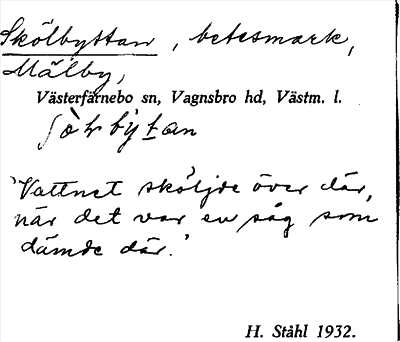 Skölbyttan, betesmark,
Mälby,
Västerfärnebo sn, Vagnsbro hd, Västm. l.
'Vattnet sköljde över där,
när det var en såg som
dämde där.'
H. Ståhl 1932.